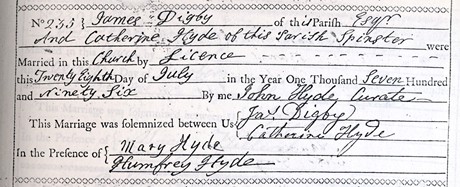 No 235 } James Digby of this Parish Esqr
And Catherine Hyde of this Parish Spinster
were
Married in this Church by Licence
this Twenty Eighth Day of July in the Year One Thousand Seven Hundred
and Ninety Six By me John Hyde Curate
This Marriage was solemnized between Us { Jas. Digby
Catherine Hyde
In the Presence of { Mary Hyde
Humfrey Hyde